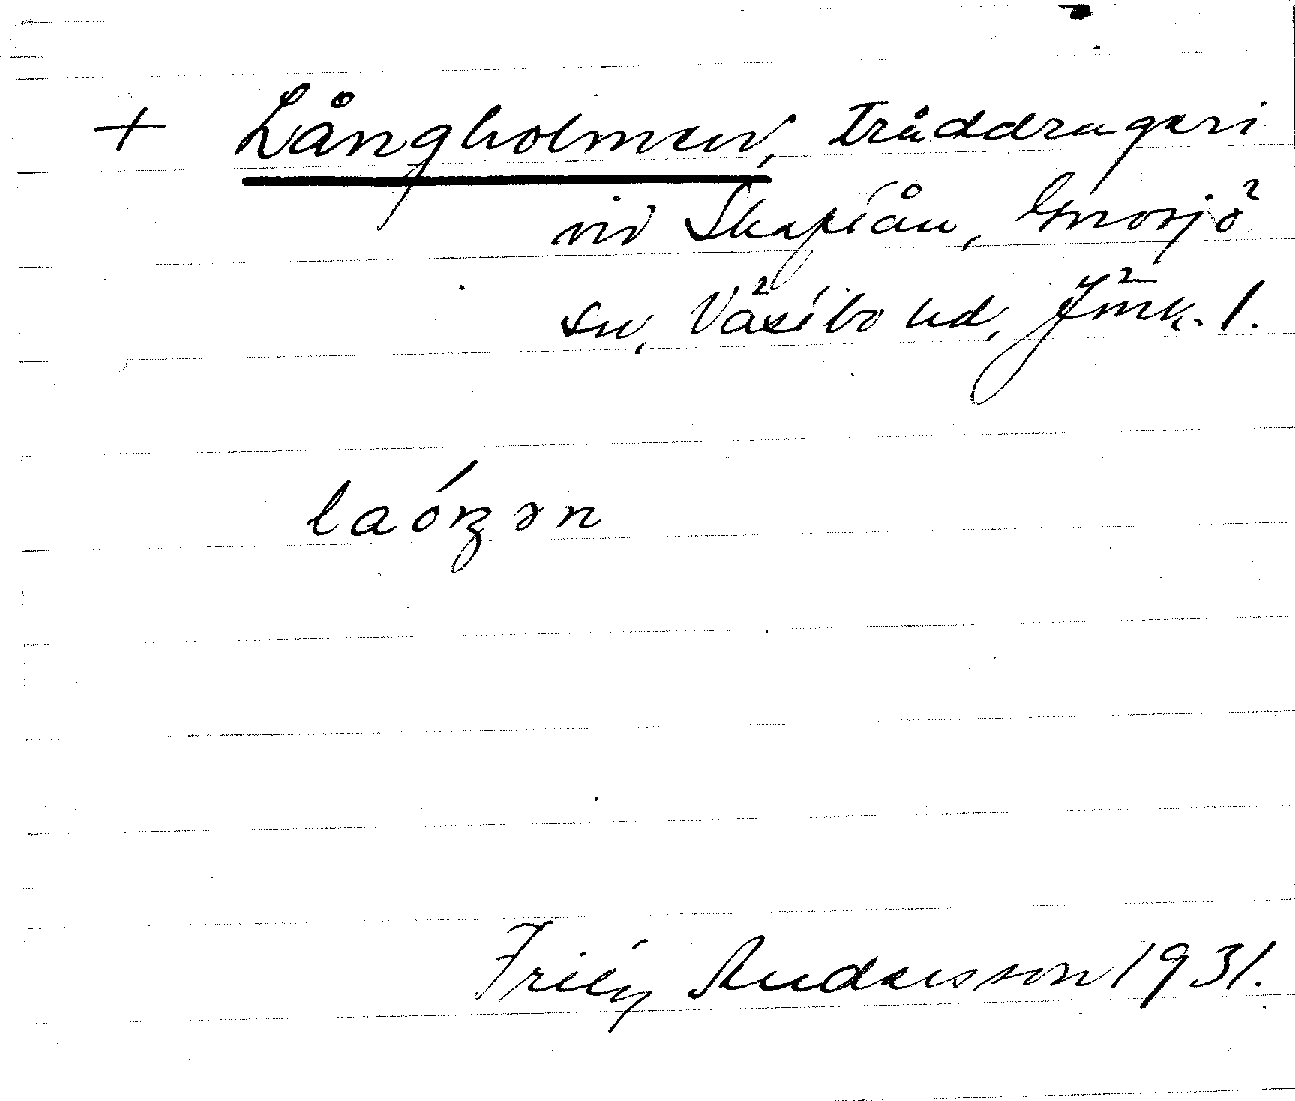 + Långholmen, tråddrageri
vid Skapeån, Gnosjö
sn, Västbo hd, Jönk. l.
laóŋən
Andersson 1931.